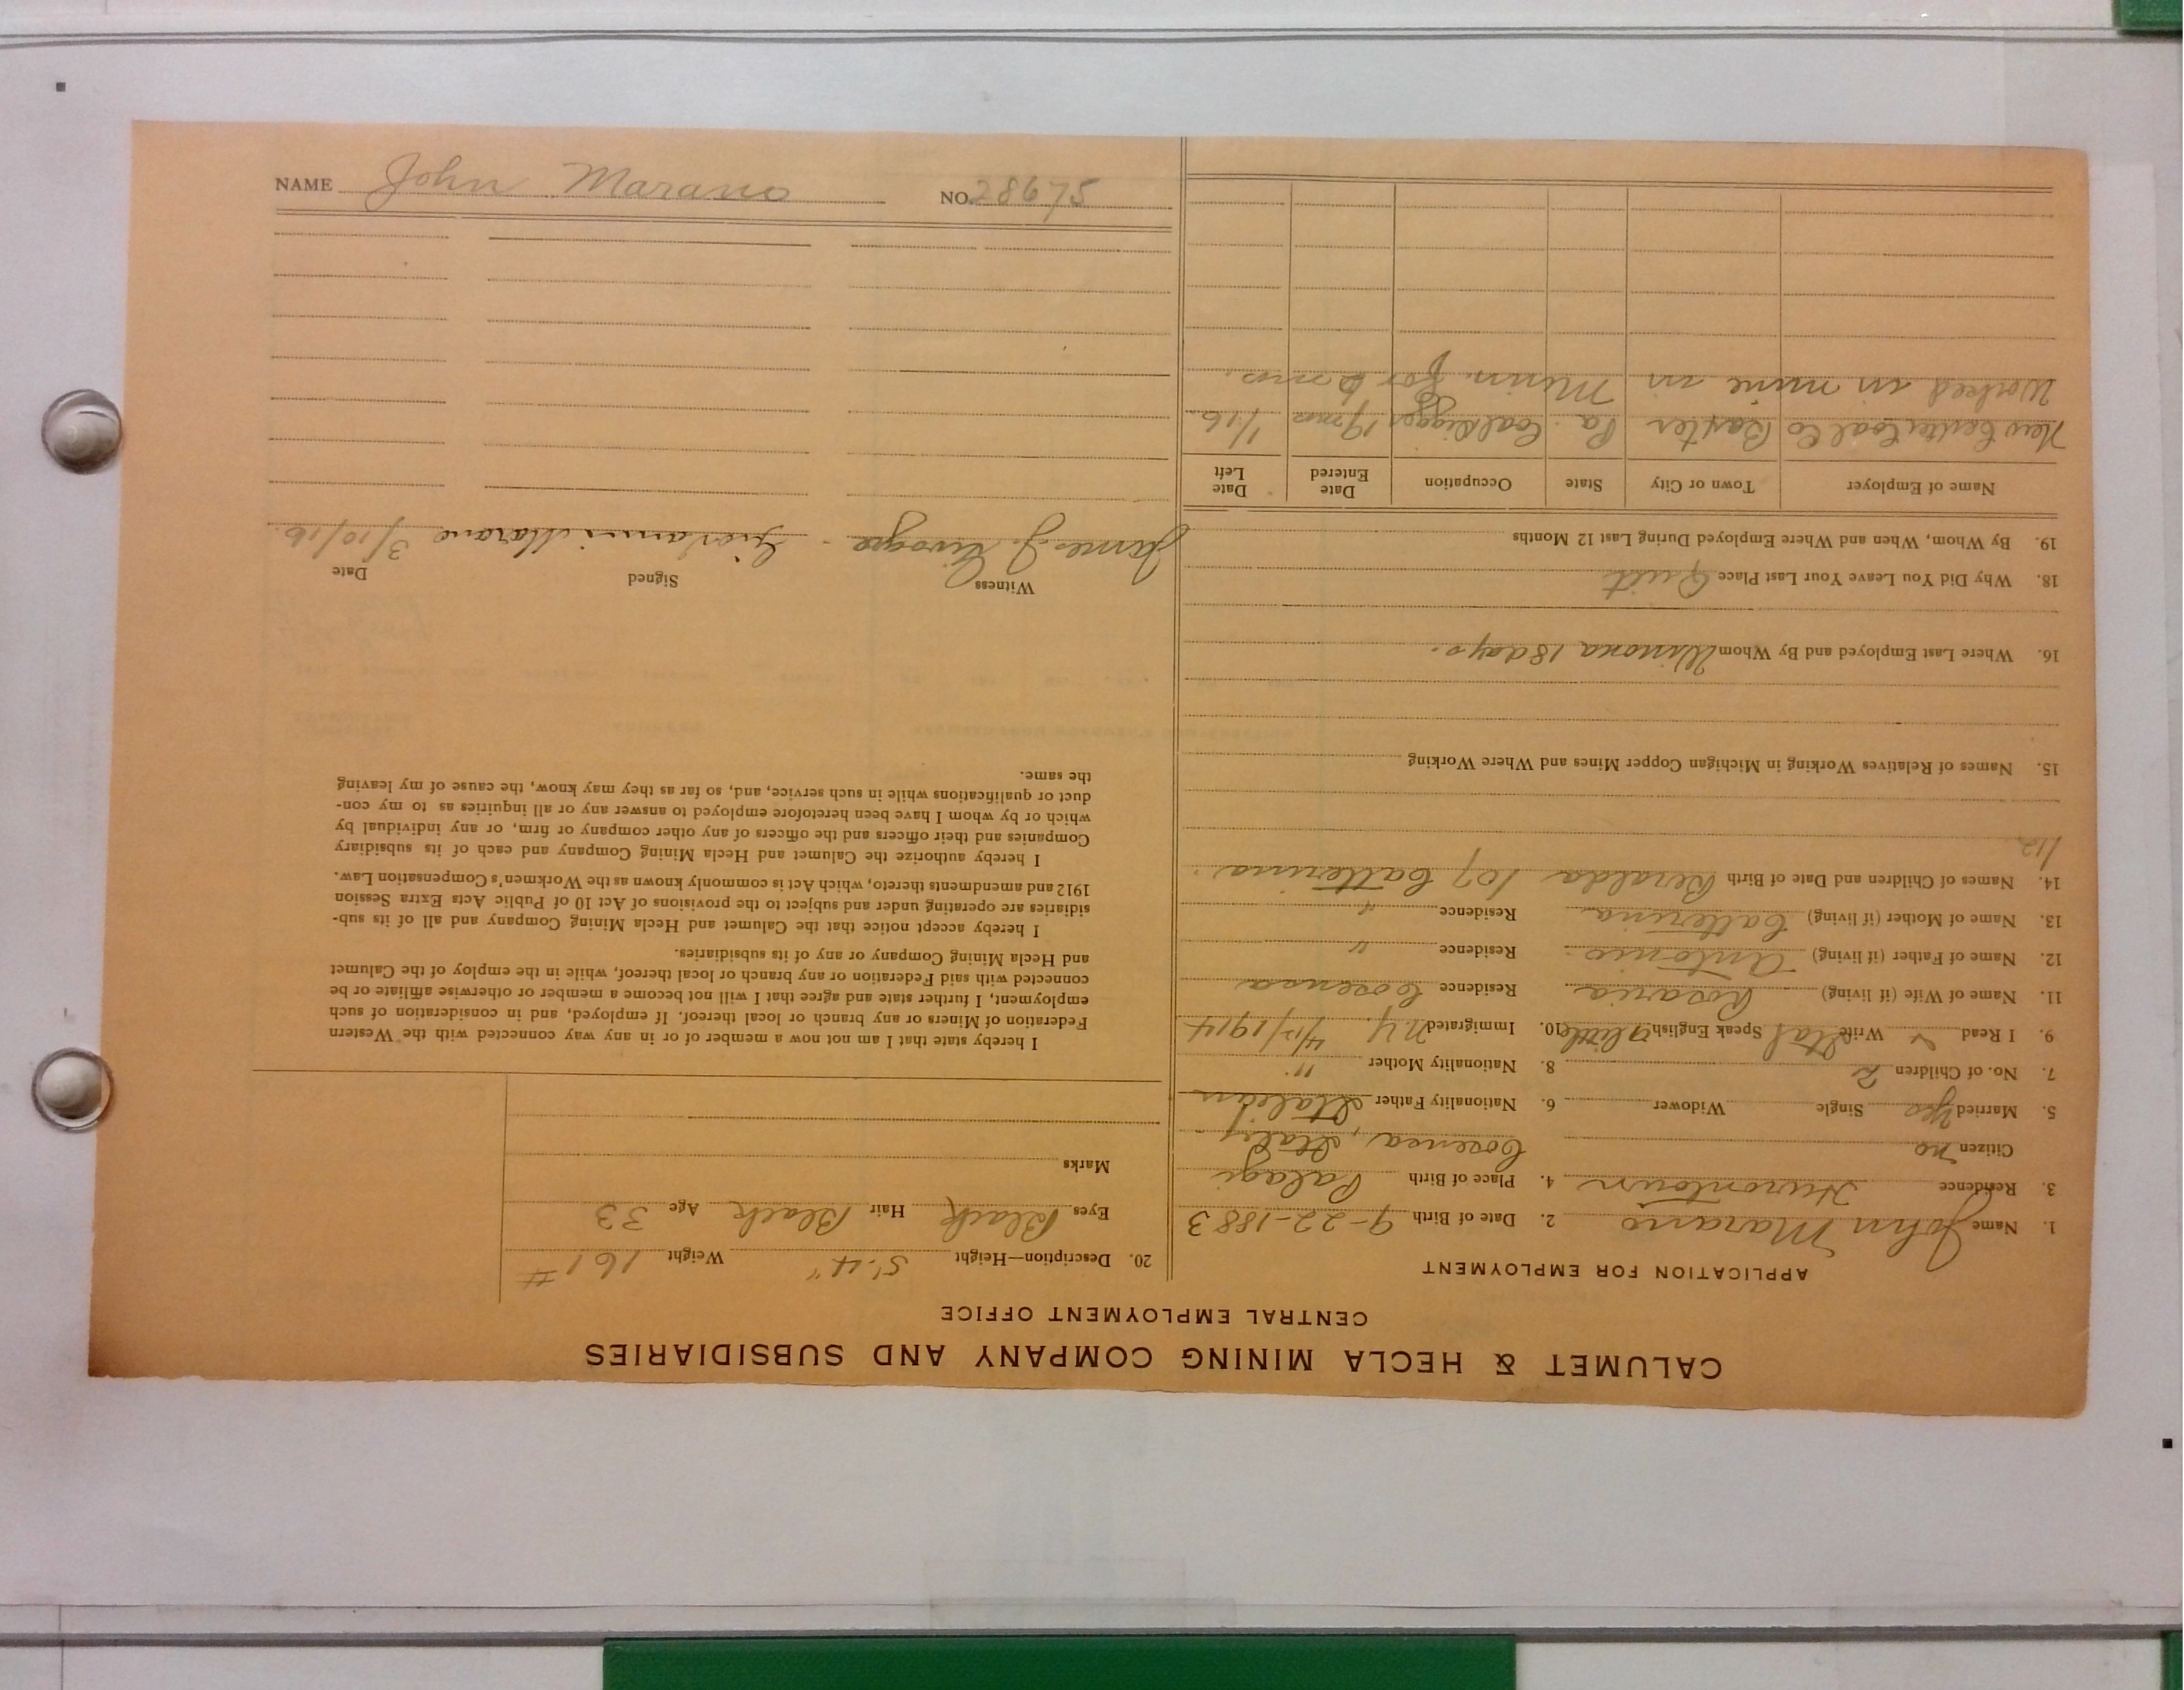 CALUMET & HECLA MINING COMPANY AND SUBSIDIARIES
CENTRAL EMPLOYMENT OFFICE
APPLICATION FOR EMPLOYMENT
1. Name John Marano 2. Date of Birth 9-22-1883
3. Residence Hurontown 4. Place of Birth Palagi
Citizen no Cosenca, Italy
5. Married yes Single Widower 6. Nationality Father Italian
7. No. of Children 2 8. Nationality Mother "
9. I Read & Write Ital Speak English little 10. Immigrated N.Y. 4/12/1914
11. Name of Wife (if living) Rosaria Residence Cosensa
12. Name of Father (if living) Antonio Residence "
13. Name of Mother (if living) Catterina Residence "
14. Names of Children and Date of Birth Beralda 107 Catterina
1/12
15. Names of Relatives Working in Michigan Copper Mines and Where Working
16. Where Last Employed and By Whom Winona 18 days.
18. Why Did You Leave Your Last Place Quit
19. By Whom, When and Where Employed During Last 12 Months
Name of Employer Town or City State Occupation Date Entered Date Left
New Coal Co Baxter Pa. Coal digger 19 mos 1/16
Worked in mine in Minn. for 6 mos.
20. Description—Height 5'-4" Weight 161 #
Eyes Black Hair Black Age 33
Marks
I hereby state that I am not now a member of or in any way connected with the Western
Federation of Miners or any branch or local thereof. If employed, and in consideration of such
employment, I further state and agree that I will not become a member or otherwise affiliate or be
connected with said Federation or any branch or local thereof, while in the employ of the Calumet
and Hecla Mining Company or any of its subsidiaries.
I hereby accept notice that the Calumet and Hecla Mining Company and all of its sub-
sidiaries are operating under and subject to the provisions of Act 10 of Public Acts Extra Session
1912 and amendments thereto, which Act is commonly known as the Workmen's Compensation Law.
I hereby authorize the Calumet and Hecla Mining Company and each of its subsidiary
Companies and their officers and the officers of any other company or firm, or any individual by
which or by whom I have been heretofore employed to answer any or all inquiries as to my con-
duct or qualifications while in such service, and, so far as they may know, the cause of my leaving
the same.
Witness Signed Date
James J. Giovanni Marano 3/10/16.
NAME John Marano NO. 28675